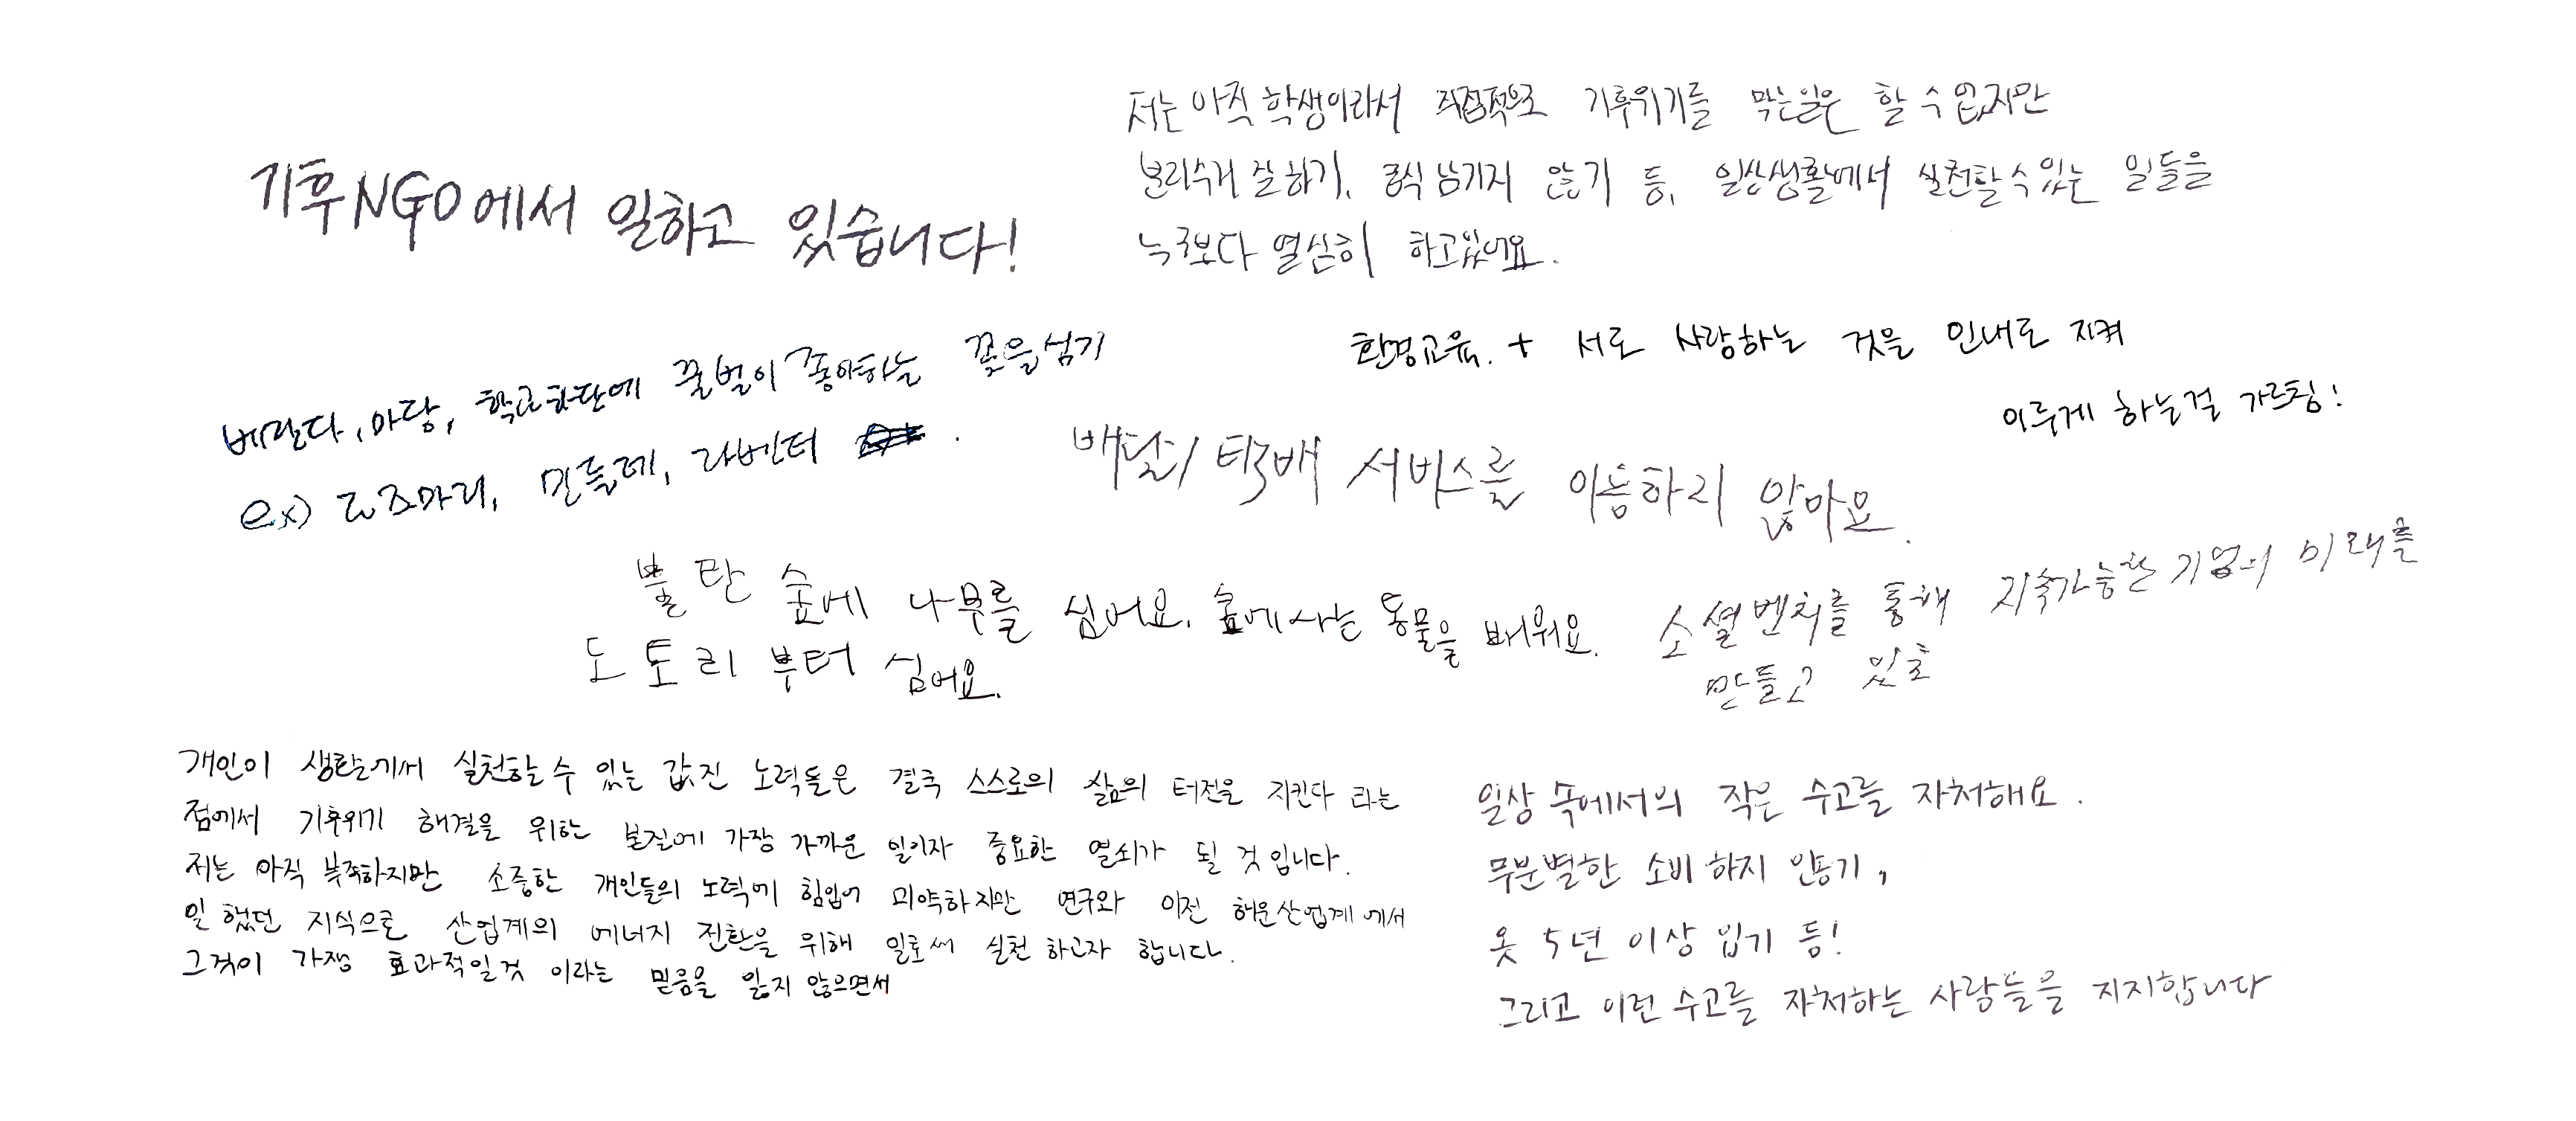 기후NGO에서 일하고 있습니다!
저는 아직 학생이라서 직접적으로 기후위기를 막는일은 할 수 없지만
분리수거 잘하기, 음식 남기지 않기 등, 일상생활에서 실천할 수 있는 일들을
누구보다 열심히 하고있어요.
베란다, 마당, 학교화단에 꿀벌이 좋아하는 꽃을 심기
ex) 민들레, 라벤더
환경교육. + 서로 사랑하는 것을 인내로 지켜
이루게 하는걸 가르침!
배달/택배 서비스를 이용하지 않아요.
불 탄 숲에 나무를 심어요. 숲에 사는 동물을 배워요.
도토리 부터 심어요.
소셜벤처를 통해 지속가능한 기업의 미래를
만들고 있죠
개인이 생활에서 실천할 수 있는 값진 노력들은 결국 스스로의 삶의 터전을 지킨다 라는
점에서 기후위기 해결을 위한 본질에 가장 가까운 일이자 중요한 열쇠가 될 것입니다.
저는 아직 부족하지만 소중한 개인들의 노력에 힘입어 미약하지만 연구와 이전 해운산업계에서
일 했던 지식으로 산업계의 에너지 전환을 위해 일로써 실천 하고자 합니다.
그것이 가장 효과적일것 이라는 믿음을 잃지 않으면서
일상 속에서의 작은 수고를 자처해요.
무분별한 소비 하지 않기,
옷 5년 이상 입기 등!
그리고 이런 수고를 자처하는 사람들을 지지합니다